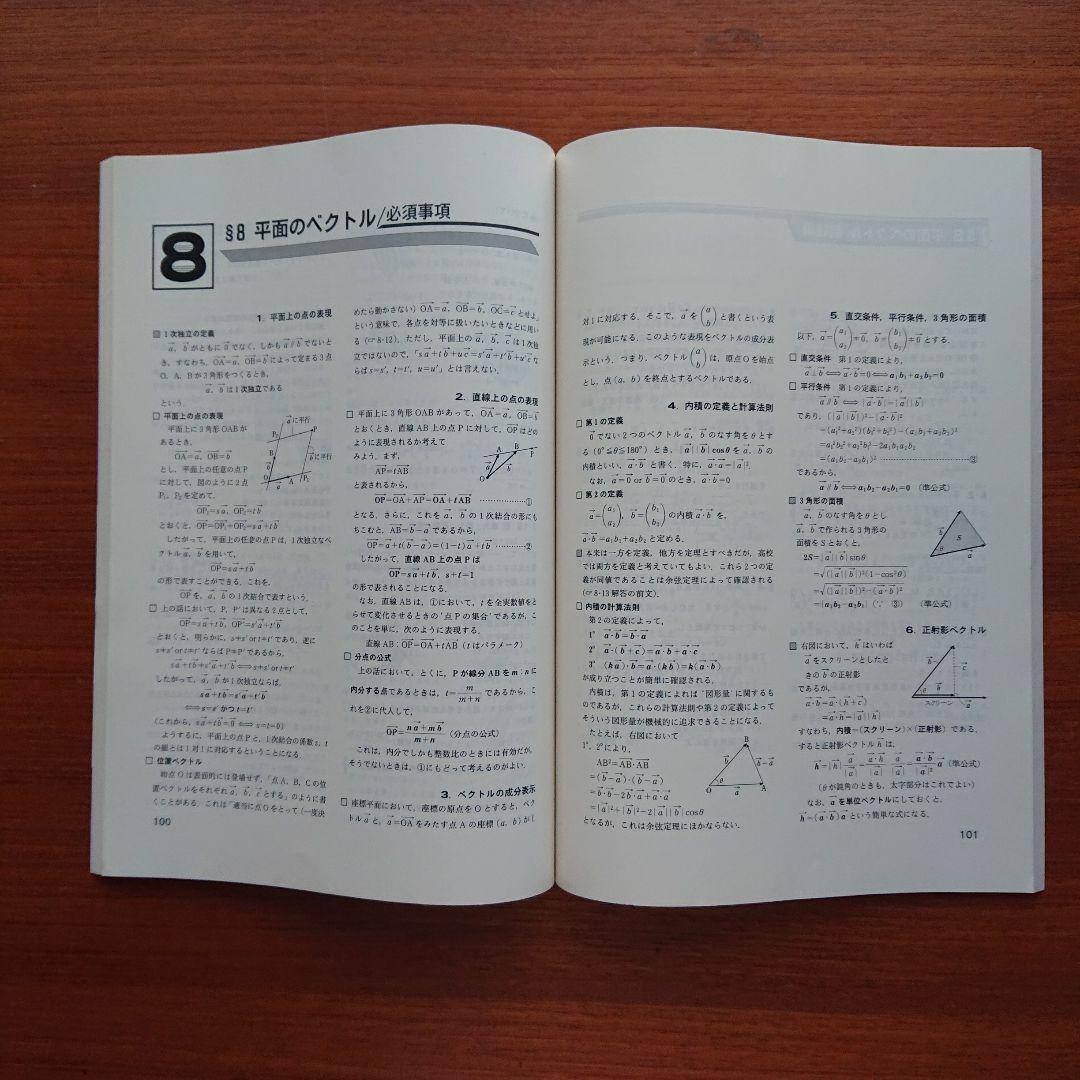 8
§8 平面のベクトル/必須事項
1. 平面上の点の表現
1次独立の定義
a→, b→がともに0→でなく, しかもa→∦b→でないと
き, すなわち, OA→=a→, OB→=b→によって定まる3点
O, A, Bが3角形をつくるとき,
a→, b→は1次独立である
という.
□ 平面上の点の表現
平面上に3角形OABが
あるとき,
OA→=a→, OB→=b→
とし, 平面上の任意の点P
に対して, 図のように2点
P₁, P₂を定めて,
OP₁→=sa→, OP₂→=tb→
とおくと, OP→=OP₁→+OP₂→=sa→+tb→
したがって, 平面上の任意の点Pは, 1次独立なベ
クトルa→, b→を用いて,
OP→=sa→+tb→
の形で表すことができる. これを,
OP→を, a→, b→の1次結合で表すという.
□ 上の話において, P, P'は異なる2点として,
OP→=sa→+tb→, OP'→=s'a→+t'b→
とおくと, 明らかに, s≠s' or t≠t'であり, 逆に
s≠s' or t≠t'ならばP≠P'であるから,
sa→+tb→≠s'a→+t'b→⟺s≠s' or t≠t'
したがって, a→, b→が1次独立ならば,
sa→+tb→=s'a→+t'b→
⟺s=s' かつ t=t'
(これから, sa→+tb→=0→⟺s=t=0)
ようするに, 平面上の点Pと, 1次結合の係数s, t
の組とは1対1に対応するということになる.
□ 位置ベクトル
始点Oは表面的には登場せず, 「点A, B, Cの位
置ベクトルをそれぞれa→, b→, c→とする」のように書
くことがある. これは「適当に点Oをとって(一度決
100
P₂
a→に平行
P
B
b→に平行
b→
O
a→
A
P₁
めたら動かさない)OA→=a→, OB→=b→, OC→=c→とせよ」
という意味で, 各点を対等に扱いたいときなどに用い
る(☞8・12). ただし, 平面上のa→, b→, c→は1次独
立ではないので, 「sa→+tb→+uc→=s'a→+t'b→+u'c→な
らばs=s', t=t', u=u'」とは言えない.
2. 直線上の点の表現
□ 平面上に3角形OABがあって, OA→=a→, OB→=b→
とおくとき, 直線AB上の点Pに対して, OP→はどの
ように表現されるか考えて
みよう. まず,
AP→=tAB→
と表されるから,
OP→=OA→+AP→=OA→+tAB→ ………………①
となる. さらに, これをa→, b→の1次結合の形にも
ちこむと, AB→=b→-a→であるから,
OP→=a→+t(b→-a→)=(1-t)a→+tb→ …………②
したがって, 直線AB上の点Pは
OP→=sa→+tb→, s+t=1
の形で表されることになる.
なお, 直線ABは, ①において, tを全実数値をと
らせて変化させるときの‘点Pの集合’であるが, こ
のことを単に, 次のように表現する.
直線AB:OP→=OA→+tAB→ (tはパラメータ)
□ 分点の公式
上の話において, とくに, Pが線分ABをm:nに
内分する点であるときは, t=m/(m+n)であるから, こ
れを②に代入して,
OP→=(na→+mb→)/(m+n) (分点の公式)
これは, 内分でしかも整数比のときには有効だが,
そうでないときは, ①にもどって考えるのがよい.
3. ベクトルの成分表示
□ 座標平面において, 座標の原点をOとすると, ベク
トルa→と, a→=OA→をみたす点Aの座標(a, b)が1
A
B
P
a→
b→
O
対1に対応する. そこで, a→を(a b)と書くという表
現が可能になる. このような表現をベクトルの成分表
示という. つまり, ベクトル(a b)は, 原点Oを始点
とし, 点(a, b)を終点とするベクトルである.
4. 内積の定義と計算法則
□ 第1の定義
0→でない2つのベクトルa→, b→のなす角をθとす
る(0°≦θ≦180°)とき, |a→||b→|cosθをa→, b→の
内積といい, a→・b→と書く. 特に, a→・a→=|a→|².
なお, a→=0→ or b→=0→のとき, a→・b→=0
□ 第2の定義
a→=(a₁ a₂), b→=(b₁ b₂)の内積a→・b→を,
a→・b→=a₁b₁+a₂b₂と定める.
本来は一方を定義, 他方を定理とすべきだが, 高校
では両方を定義と考えていてもよい. これら2つの定
義が同値であることは余弦定理によって確認される
(☞8・13解答の前文).
□ 内積の計算法則
第2の定義によって,
1° a→・b→=b→・a→
2° a→・(b→+c→)=a→・b→+a→・c→
3° (ka→)・b→=a→・(kb→)=k(a→・b→)
が成り立つことが簡単に確認される.
内積は, 第1の定義によれば‘図形量’に関するも
のであるが, これらの計算法則や第2の定義によって
そういう図形量が機械的に追求できることになる.
たとえば, 右図において
1°, 2°により,
AB²=AB→・AB→
=(b→-a→)・(b→-a→)
=b→・b→-2b→・a→+a→・a→
=|a→|²+|b→|²-2|a→||b→|cosθ
となるが, これは余弦定理にほかならない.
B
b→
b→-a→
θ
O
a→
A
5. 直交条件, 平行条件, 3角形の面積
以下, a→=(a₁ a₂)≠0→, b→=(b₁ b₂)≠0→とする.
□ 直交条件 第1の定義により,
a→⊥b→⟺a→・b→=0⟺a₁b₁+a₂b₂=0
□ 平行条件 第1の定義により,
a→∥b→ ⟺ |a→・b→|=|a→||b→|
であり, (|a→||b→|)²-(a→・b→)²
=(a₁²+a₂²)(b₁²+b₂²)-(a₁b₁+a₂b₂)²
=a₁²b₂²+a₂²b₁²-2a₁b₁a₂b₂
=(a₁b₂-a₂b₁)² ………………………③
であるから,
a→∥b→⟺a₁b₂-a₂b₁=0 (準公式)
3角形の面積
a→, b→のなす角をθとし
a→, b→で作られる3角形の
面積をSとおくと,
2S=|a→||b→|sinθ
=√(|a→||b→|)²(1-cos²θ)
=√(|a→||b→|)²-(a→・b→)²
=|a₁b₂-a₂b₁| (∵ ③) (準公式)
b→
S
θ
a→
6. 正射影ベクトル
右図において, h→はいわば
a→をスクリーンとしたと
きのb→の正射影
であるが,
a→・b→=a→・(h→+c→)
=a→・h→=|a→||h→|
すなわち, 内積=(スクリーン)×(正射影) である.
すると正射影ベクトルh→は,
h→=|h→|a→/|a→|=(a→・b→)/|a→|・a→/|a→|=(a→・b→)/|a→|² a→ (準公式)
(θが鈍角のときも, 太字部分はこれでよい)
なお, a→を単位ベクトルにしておくと,
h→=(a→・b→)a→という簡単な式になる.
b→
c→
θ
h→
スクリーン
a→
101